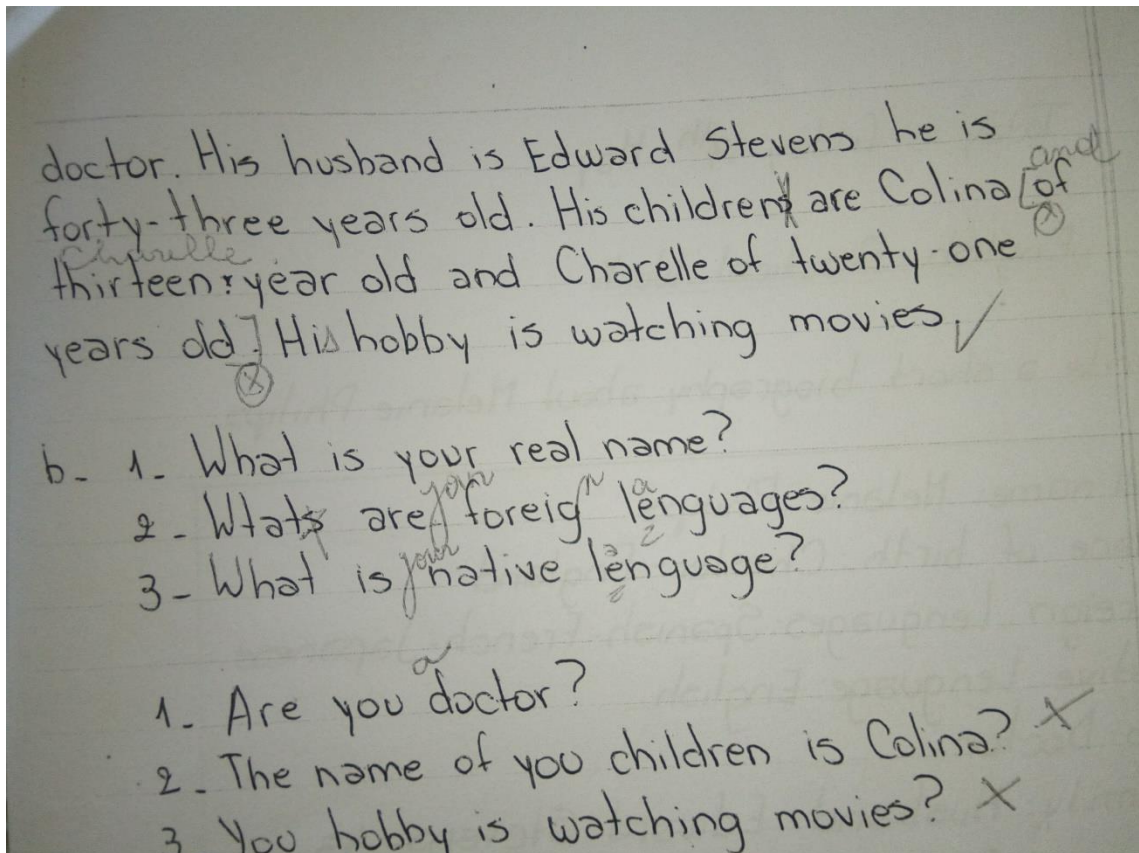 doctor. His husband is Edward Stevens he is
and
forty-three years old. His children are Colina [of
Charelle
thirteen year old and Charelle of twenty-one
years old] His hobby is watching movies
b- 1- What is your real name?
your n a
2- Wtats are foreig lenguages?
your a
3- What is native lenguage?
a
1- Are you doctor?
2- The name of you children is Colina? X
3 You hobby is watching movies? X